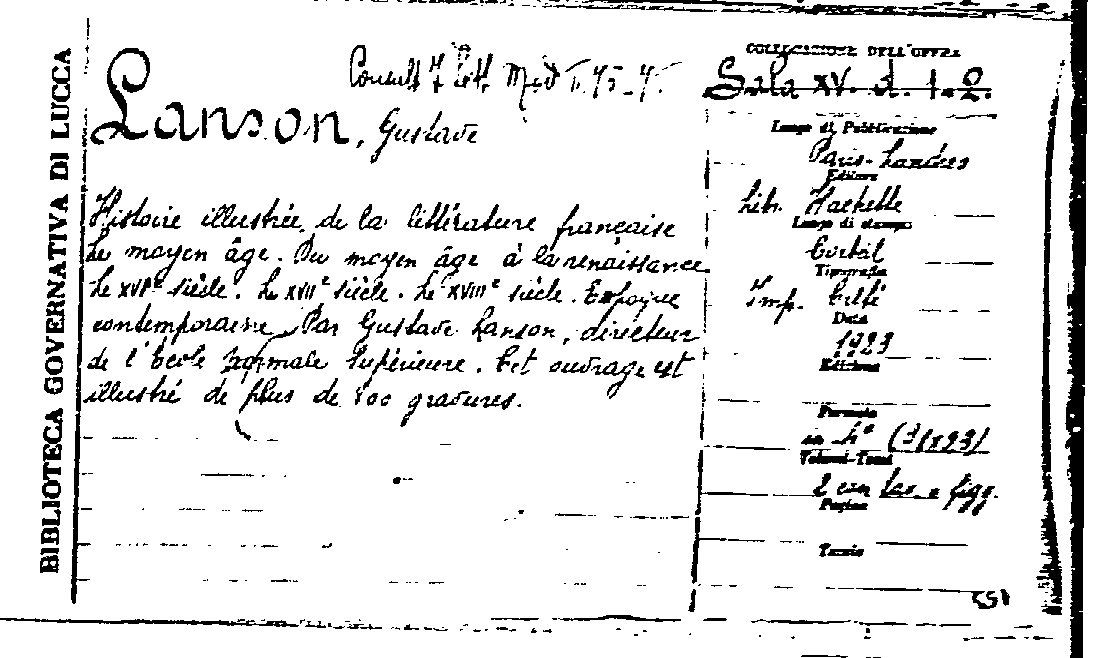 BIBLIOTECA GOVERNATIVA DI LUCCA
Lanson, Gustave
Histoire illustrée de la littérature française
Le moyen âge. Du moyen âge à la renaissance
Le XVIe siècle. Le XVIIe siècle. Le XVIIIe siècle. Epoque
contemporaine Par Gustave Lanson, directeur
de l'Ecole normale Supérieure. Cet ouvrage est
illustré de plus de 800 gravures.
COLLOCAZIONE DELL'OPERA
Sala XV. d. 1.-2.
Luogo di Pubblicazione
Paris-Londres
Editore
Lib. Hachette
Luogo di stampa
Corbeil
Tipografia
Imp. Crété
Data
1923
Edizione
Formato
in 4° (31x23)
Volumi-Tomi
2 con tav. e figg.
Pagine
Tomio